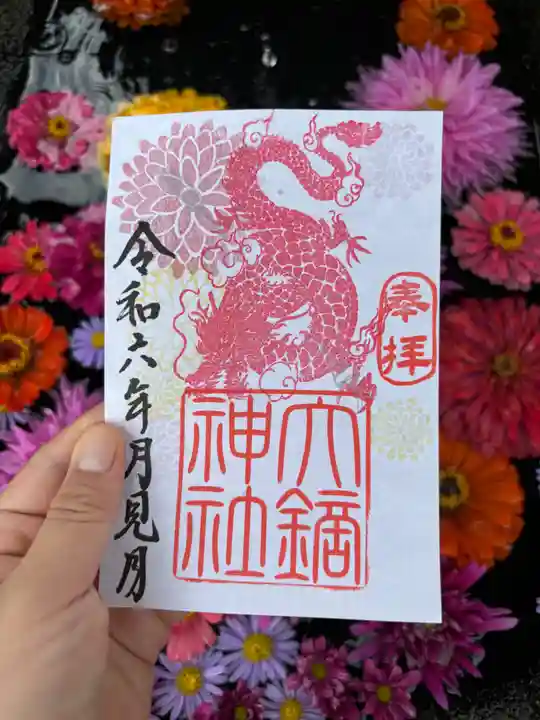 奉拝
六鏑
神社
令和六年月見月